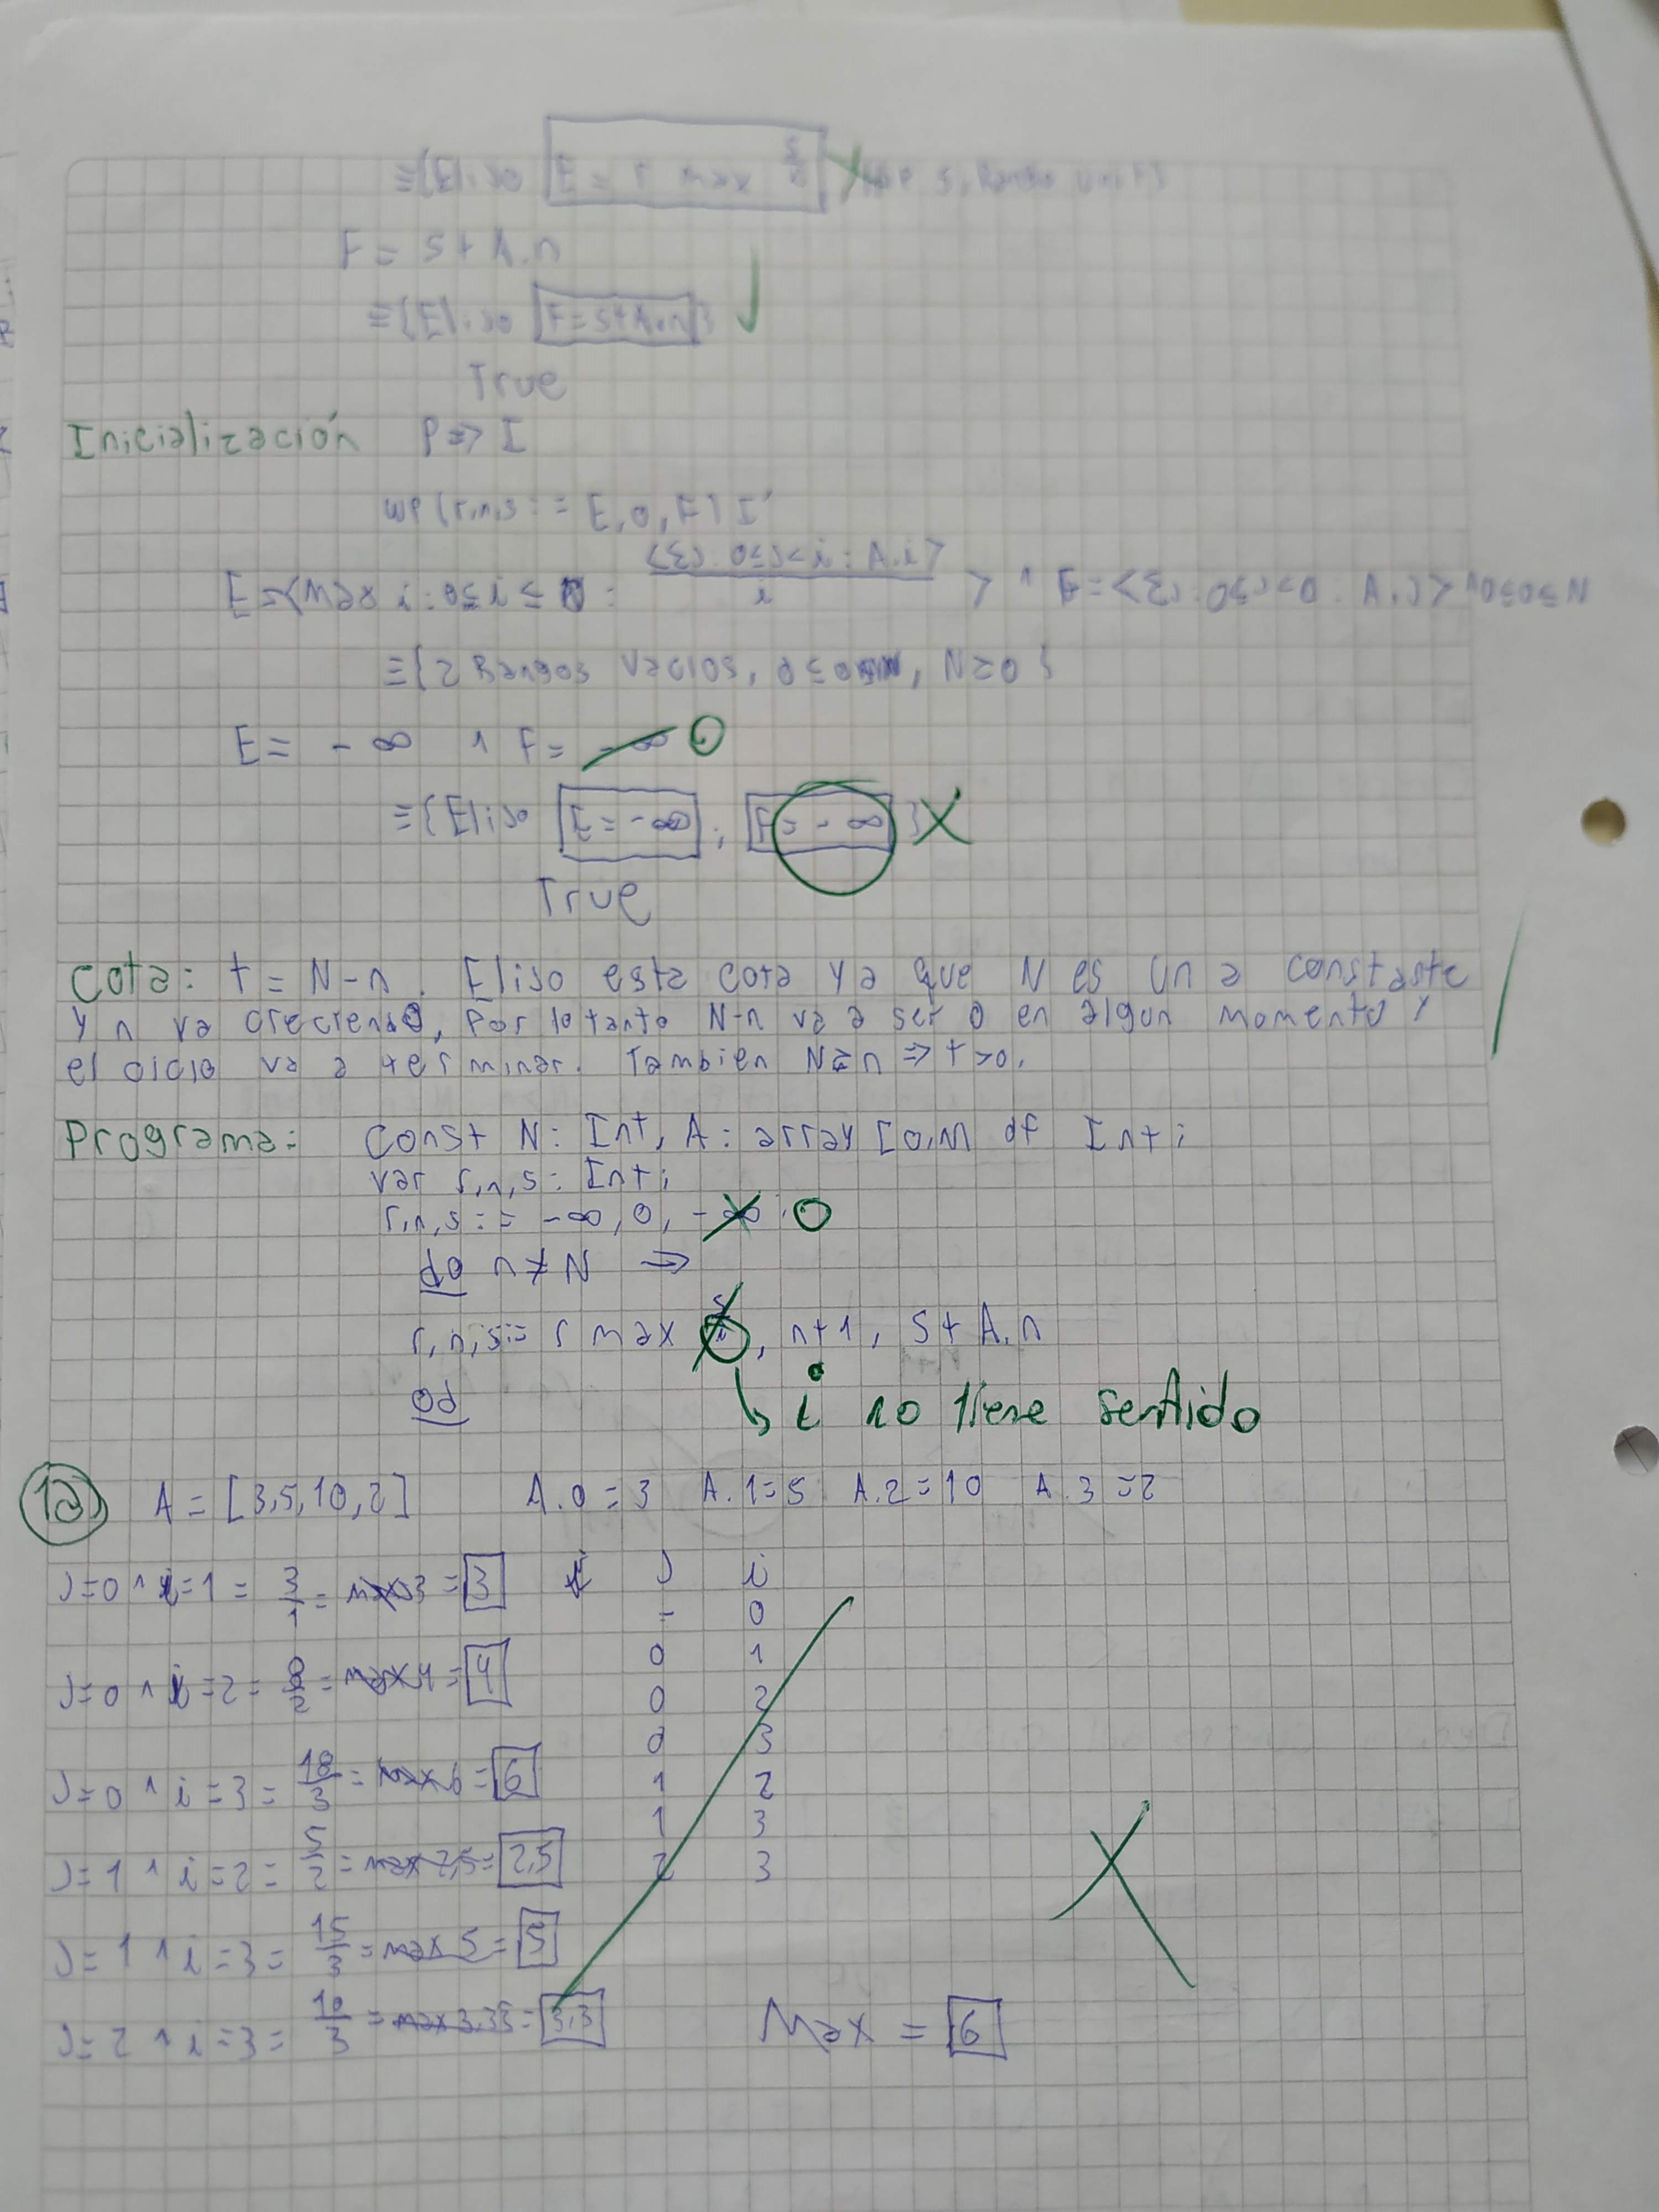 ≡{Elijo E = r max s/n X, Rango unit}
F = S + A.n
≡{Elijo F = S + A.n} ✓
True
Inicialización P => I
wp (r,n,s := E, 0, F) I
E = <Max i : 0≤i≤0 : <Σj : 0≤j<i : A.i> / i > ∧ F = <Σj : 0≤j<0 : A.j> ∧ 0≤0≤N
≡{2 Rangos Vacios, 0≤0, N≥0}
E = -∞ ∧ F = -∞ 0
≡{Elijo E = -∞ ; F = -∞} X
True
Cota: t = N-n. Elijo esta cota ya que N es una constante
y n va creciendo, por lo tanto N-n va a ser 0 en algun momento y
el ciclo va a terminar. Tambien N≥n => t>0.
Programa: Const N: Int, A: array [0,N) of Int;
Var r,n,s: Int;
r,n,s := -∞, 0, -∞ 0
do n≠N ->
r,n,s := r max s/i, n+1, S + A.n
↳ i no tiene sentido
od
1a) A = [3,5,10,2] A.0=3 A.1=5 A.2=10 A.3=2
J i
J=0 ∧ i=1 = 3/1 = max 3 = 3
- 0
0 1
J=0 ∧ i=2 = 8/2 = max 4 = 4
0 2
0 3
J=0 ∧ i=3 = 18/3 = max 6 = 6
1 2
1 3
J=1 ∧ i=2 = 5/2 = max 2,5 = 2,5
2 3
X
J=1 ∧ i=3 = 15/3 = max 5 = 5
J=2 ∧ i=3 = 10/3 = max 3,33 = 3,3
Max = 6